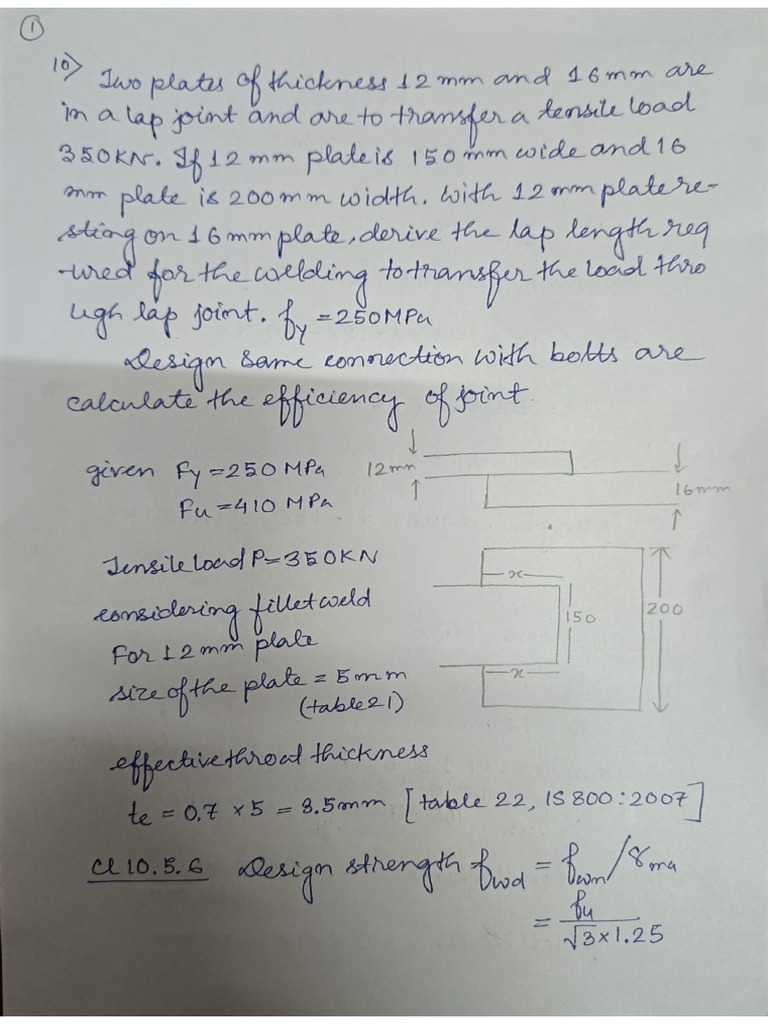 ①
10) Two plates of thickness 12 mm and 16 mm are
in a lap joint and are to transfer a tensile load
350KN. If 12 mm plate is 150 mm wide and 16
mm plate is 200 mm width. With 12 mm plate re-
sting on 16 mm plate, derive the lap length req
-uired for the welding to transfer the load thro
ugh lap joint. fy = 250 MPa
Design same connection with bolts are
calculate the efficiency of joint.
given Fy = 250 MPa
12 mm
16 mm
Fu = 410 MPa
Tensile load P = 350KN
considering fillet weld
x
150
200
For 12 mm plate
size of the plate = 5 mm
x
(table 21)
effective throat thickness
te = 0.7 × 5 = 3.5mm [table 22, IS 800:2007]
Cl 10.5.6 Design strength fwd = fwn/γma
= fu/√3×1.25